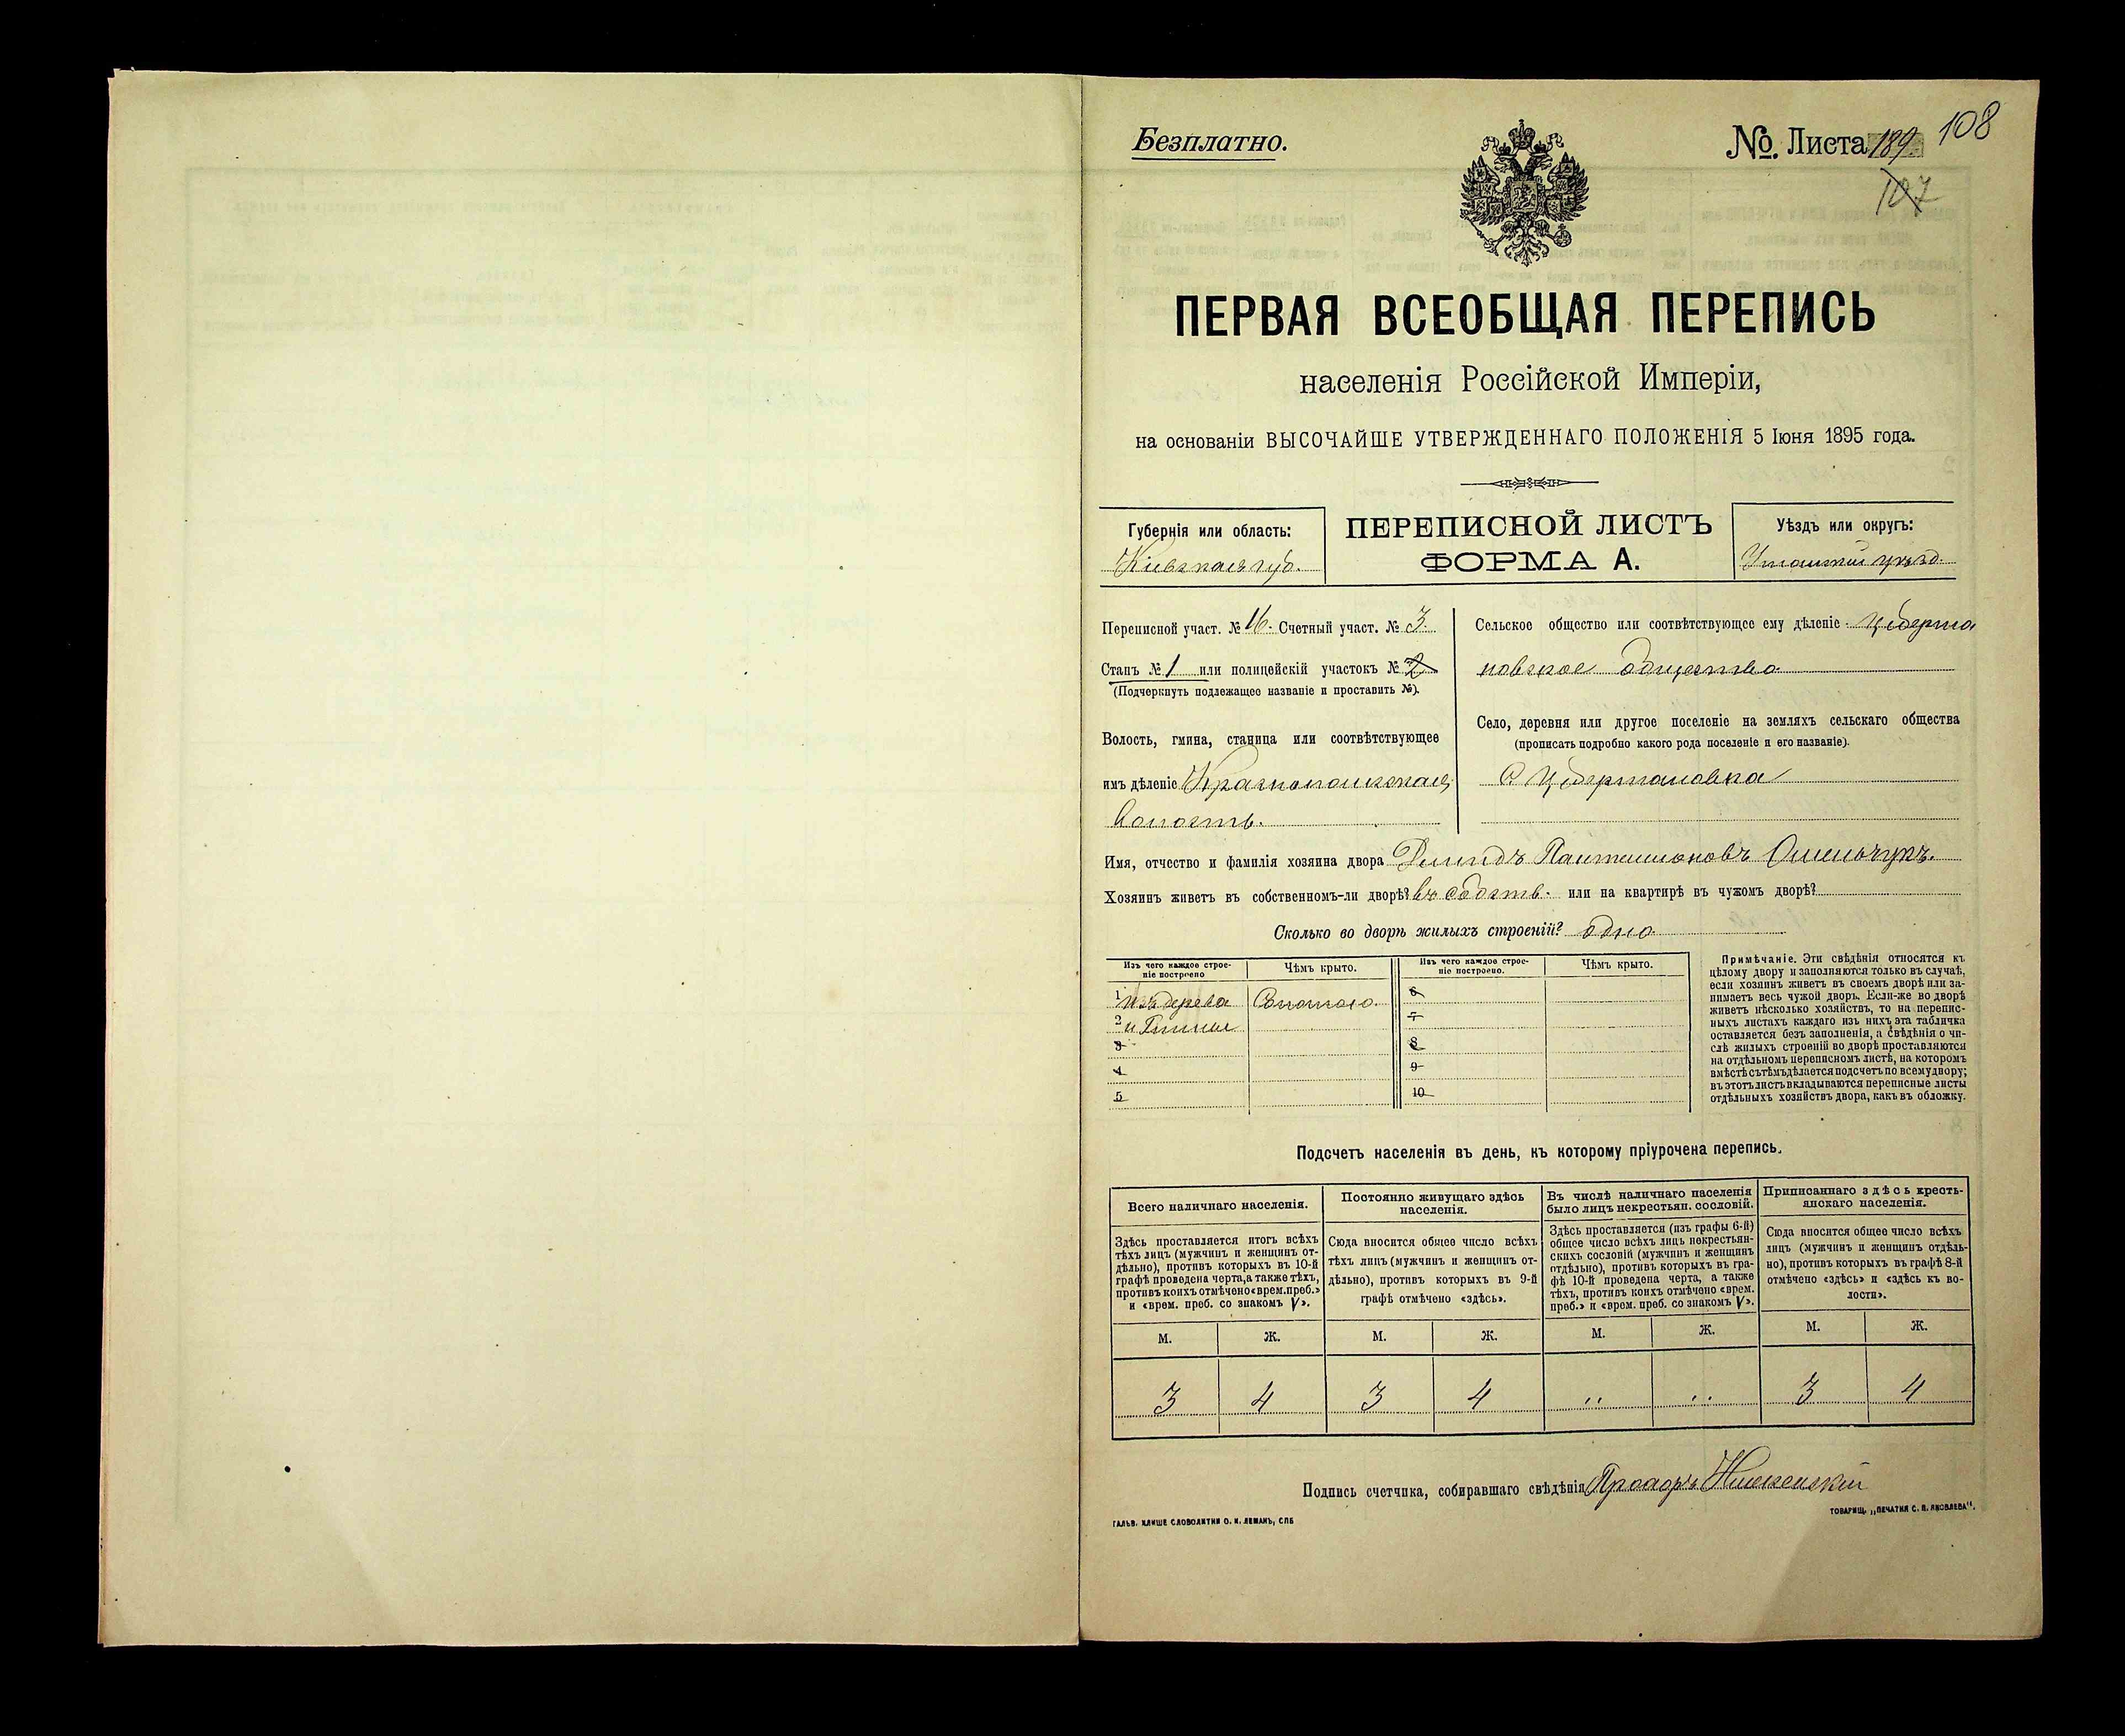 Безплатно.
№. Листа 189 108
107
ПЕРВАЯ ВСЕОБЩАЯ ПЕРЕПИСЬ
населенія Россійской Имперіи,
на основаніи ВЫСОЧАЙШЕ УТВЕРЖДЕННАГО ПОЛОЖЕНІЯ 5 Іюня 1895 года.
Губернія или область:
Кіевская губ.
ПЕРЕПИСНОЙ ЛИСТЪ
ФОРМА А.
Уѣздъ или округъ:
Уманскій уѣзд.
Переписной участ. № 16. Счетный участ. № 3.
Станъ № 1 или полицейскій участокъ № 2
(Подчеркнуть подлежащее названіе и проставить №).
Волость, гмина, станица или соотвѣтствующее
имъ дѣленіе Краснопольская
Волость.
Сельское общество или соотвѣтствующее ему дѣленіе Цеберма
новское общество
Село, деревня или другое поселеніе на земляхъ сельскаго общества
(прописать подробно какого рода поселеніе и его названіе).
С Цебермановка
Имя, отчество и фамилія хозяина двора Демидъ Пантелимоновъ
Хозяинъ живетъ въ собственномъ-ли дворѣ? въ собств. или на квартирѣ въ чужомъ дворѣ?
Сколько во дворѣ жилыхъ строеній? одно
Изъ чего каждое строе-
ніе построено
Чѣмъ крыто.
Изъ чего каждое строе-
ніе построено.
Чѣмъ крыто.
1 изъ дерева Соломою.
2 и Глины
3
4
5
6
7
8
9
10
Примѣчаніе. Эти свѣдѣнія относятся къ
цѣлому двору и заполняются только въ случаѣ,
если хозяинъ живетъ въ своемъ дворѣ или за-
нимаетъ весь чужой дворъ. Если-же во дворѣ
живетъ нѣсколько хозяйствъ, то на перепис-
ныхъ листахъ каждаго изъ нихъ эта табличка
оставляется безъ заполненія, а свѣдѣнія о чи-
слѣ жилыхъ строеній во дворѣ проставляются
на отдѣльномъ переписномъ листѣ, на которомъ
вмѣстѣ съ тѣмъ дѣлается подсчетъ по всему двору;
въ этотъ листъ вкладываются переписные листы
отдѣльныхъ хозяйствъ двора, какъ въ обложку.
Подсчетъ населенія въ день, къ которому пріурочена перепись.
Всего наличнаго населенія.
Здѣсь проставляется итогъ всѣхъ
тѣхъ лицъ (мужчинъ и женщинъ от-
дѣльно), противъ которыхъ въ 10-й
графѣ проведена черта, а также тѣхъ,
противъ коихъ отмѣчено «врем. преб.»
и «врем. преб. со знакомъ V».
Постоянно живущаго здѣсь
населенія.
Сюда вносится общее число всѣхъ
тѣхъ лицъ (мужчинъ и женщинъ от-
дѣльно), противъ которыхъ въ 9-й
графѣ отмѣчено «здѣсь».
Въ числѣ наличнаго населенія
было лицъ некрестьян. сословій.
Здѣсь проставляется (изъ графы 6-й)
общее число всѣхъ лицъ некрестьян-
скихъ сословій (мужчинъ и женщинъ
отдѣльно), противъ которыхъ въ гра-
фѣ 10-й проведена черта, а также
тѣхъ, противъ коихъ отмѣчено «врем.
преб.» и «врем. преб. со знакомъ V».
Приписаннаго здѣсь кресть-
янскаго населенія.
Сюда вносится общее число всѣхъ
лицъ (мужчинъ и женщинъ отдѣль-
но), противъ которыхъ въ графѣ 8-й
отмѣчено «здѣсь» и «здѣсь къ во-
лости».
М. Ж. М. Ж. М. Ж. М. Ж.
3 4 3 4 ,, ,, 3 4
Подпись счетчика, собиравшаго свѣдѣнія Прохоръ
ГАЛЬВ. КЛИШЕ СЛОВОЛИТНИ О. И. ЛЕМАНЪ, СПБ
ТОВАРИЩ. „ПЕЧАТНЯ С. П. ЯКОВЛЕВА".